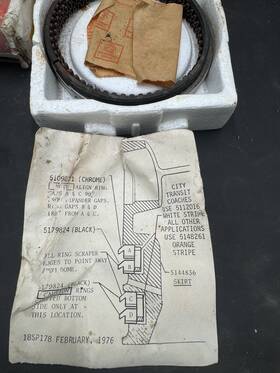 5109821 (CHROME)
ALIGN RING
GAPS A & C 90°
EXPANDER GAPS.
RING GAPS B & D
180° FROM A & C.
5179824 (BLACK)
OIL RING SCRAPER
EDGES TO POINT AWAY
DOME.
5179824 (BLACK)
RINGS
BOTTOM
SIDE ONLY AT
THIS LOCATION.
A
B
C
D
CITY
TRANSIT
COACHES
USE 5112016
WHITE STRIPE
ALL OTHER
APPLICATIONS
USE 5148261
ORANGE
STRIPE
5144836
SKIRT
18SP178 FEBRUARY, 1976